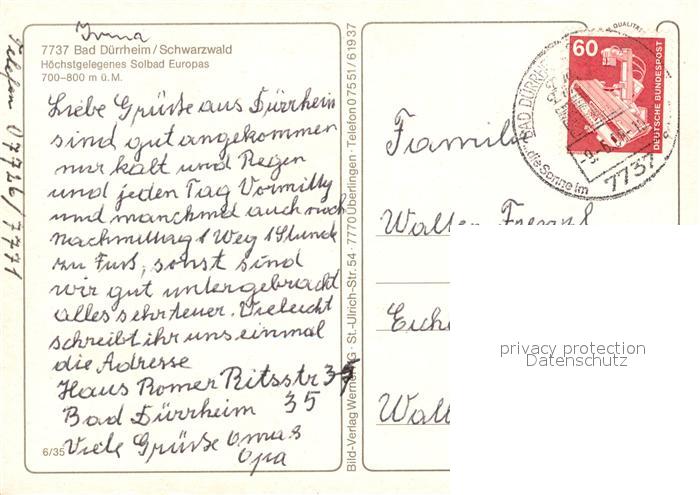 Irma
7737 Bad Dürrheim/Schwarzwald
Höchstgelegenes Solbad Europas
700–800 m ü.M.
Telefon 07726/7771
Liebe Grüße aus Dürrheim
sind gut angekommen
nur kalt und Regen
und jeden Tag Vormittg
und manchmal auch noch
Nachmittag 1 Weg 1 Stunde
zu Fuß, sonst sind
wir gut untergebracht
alles sehr teuer. Vieleicht
schreibt ihr uns einmal
die Adresse
Haus Romer Ritsstr
Bad Dürrheim 35
Viele Grüße Omas
Opa
6/35
Bild-Verlag Werner · St.-Ulrich-Str. 54 · 7770 Überlingen · Telefon 07551/61937
60
DEUTSCHE BUNDESPOST
BAD DÜRRHE
die Sonne im
7737
Familie
Walter
Eich
Walt
privacy protection
Datenschutz